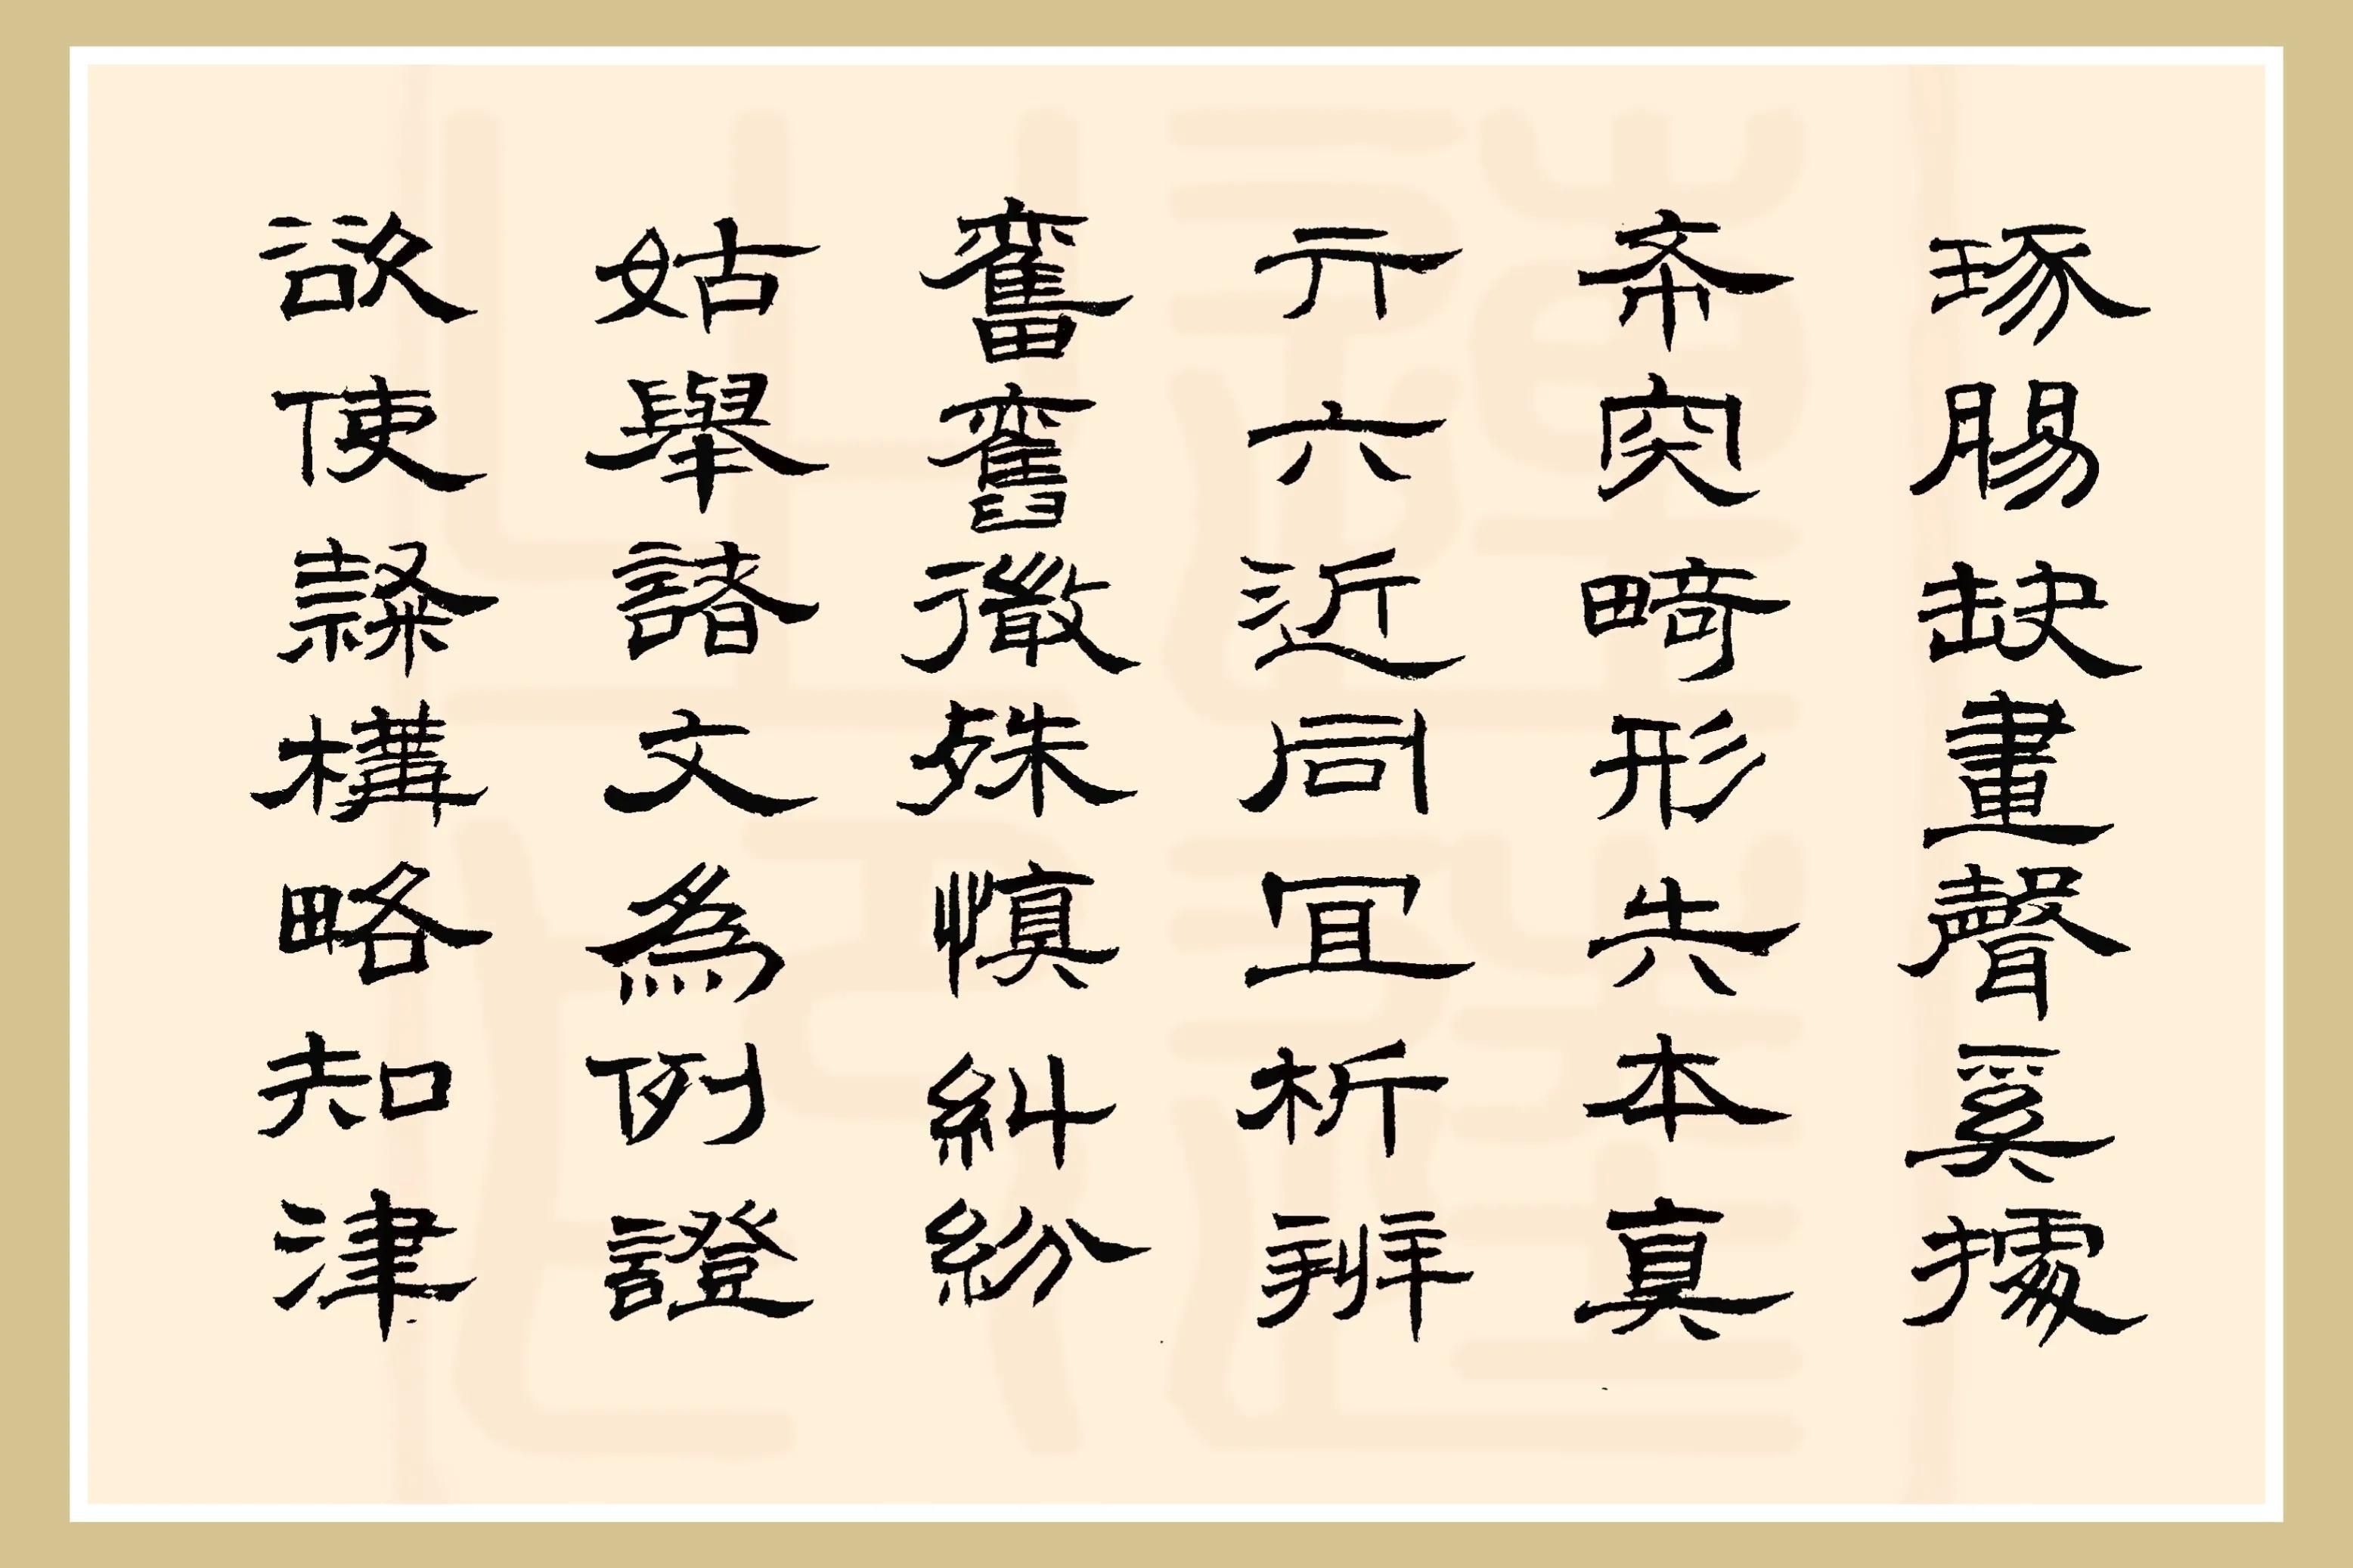 琢賜缺畫聲奚據
帝突畸形失本真
亓六近同宜析辨
奮舊微殊慎糾紛
姑舉諸文為例證
欲使隸構略知津